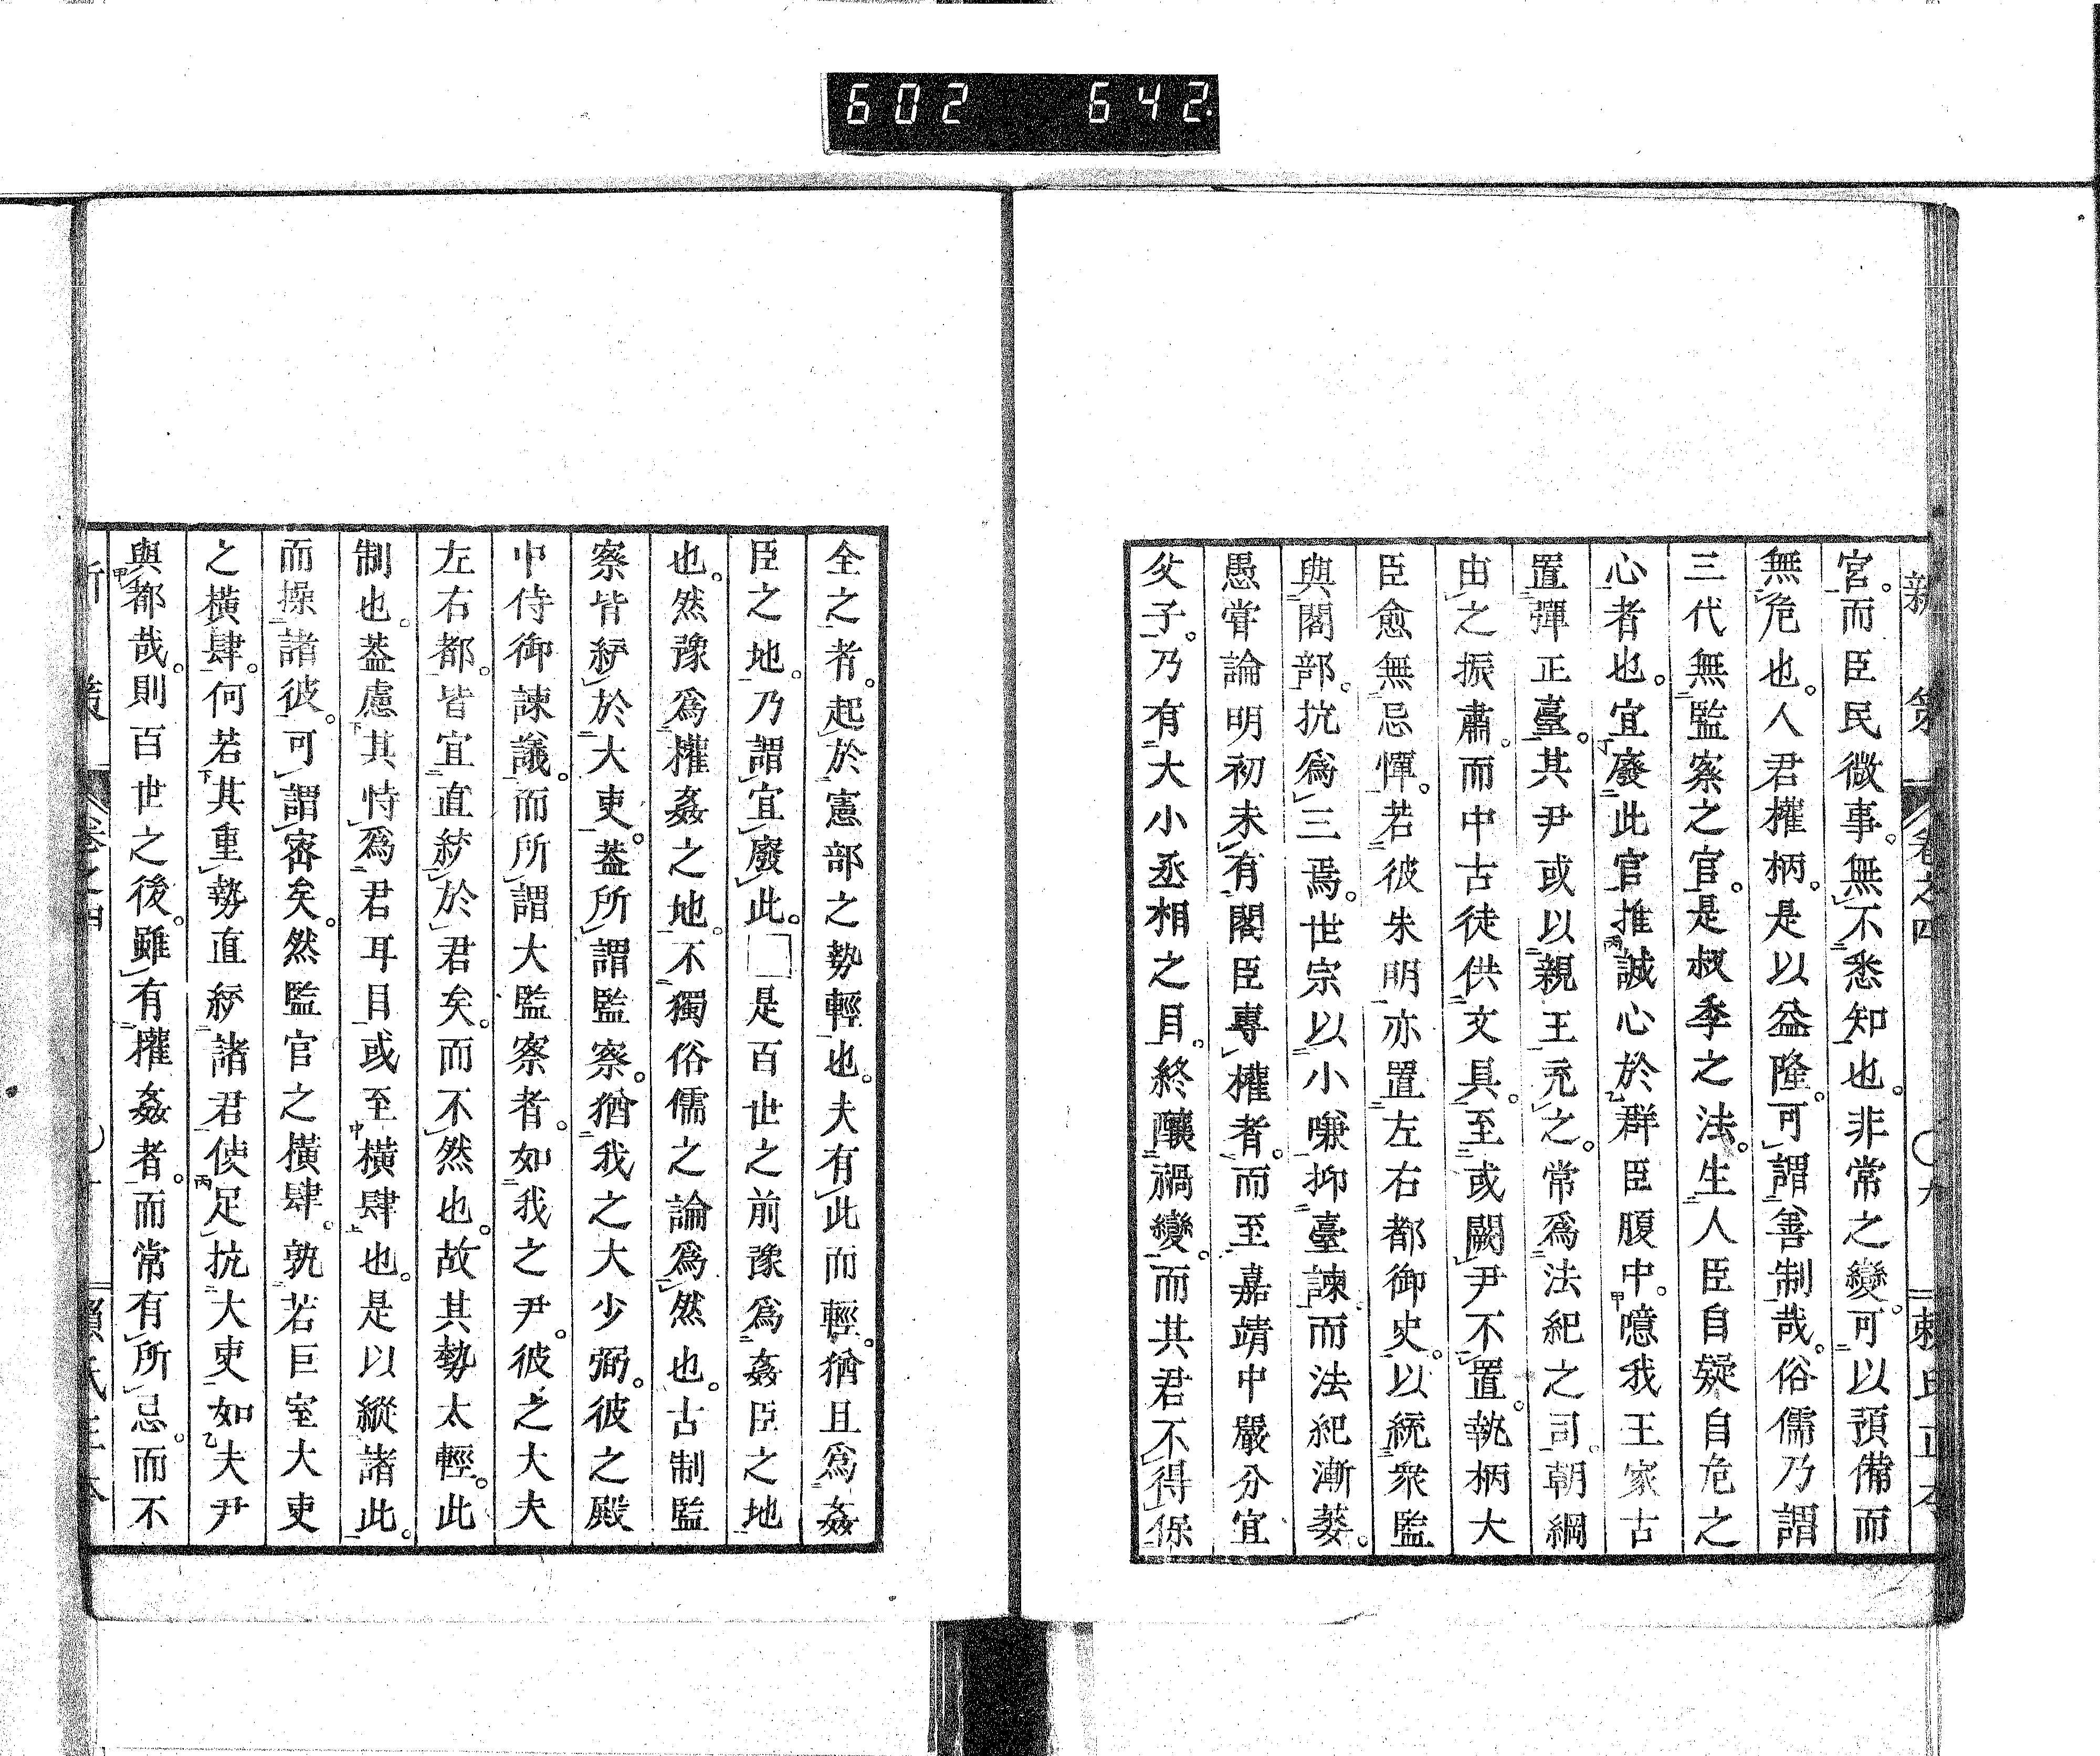 602 642
新策 卷之四 ○九 賴氏正本
宮。而臣民微事。無不悉知也。非常之變。可以預備而
無危也。人君權柄。是以益隆。可謂善制哉。俗儒乃謂
三代無監察之官。是叔季之法。生人臣自疑自危之
心者也。宜廢此官。推誠心於群臣腹中。噫我王家古
置彈正臺。其尹或以親王充之。常爲法紀之司。朝綱
由之振肅。而中古徒供文具。至或闕尹不置。執柄大
臣愈無忌憚。若彼朱明亦置左右都御史。以統衆監
與閣部。抗爲三焉。世宗以小嗛抑臺諫。而法紀漸蔞。
愚嘗論明初未有閣臣專權者。而至嘉靖中嚴分宜
父子。乃有大小丞相之目。終釀禍變。而其君不得保
全之者。起於憲部之勢輕也。夫有此而輕。猶且爲姦
臣之地。乃謂宜廢此。□是百世之前豫爲姦臣之地
也。然豫爲權姦之地。不獨俗儒之論爲然也。古制監
察皆統於大吏。蓋所謂監察。猶我之大少弼。彼之殿
中侍御諫議。而所謂大監察者。如我之尹。彼之大夫
左右都。皆宜直統於君矣。而不然也。故其勢太輕。此
制也。蓋慮其恃爲君耳目。或至橫肆也。是以縱諸此。
而操諸彼。可謂密矣。然監官之橫肆。孰若巨室大吏
之橫肆。何若其重勢直統諸君。使足抗大吏。如夫尹
與都哉。則百世之後。雖有權姦者。而常有所忌。而不
新策 卷之四 賴氏正本